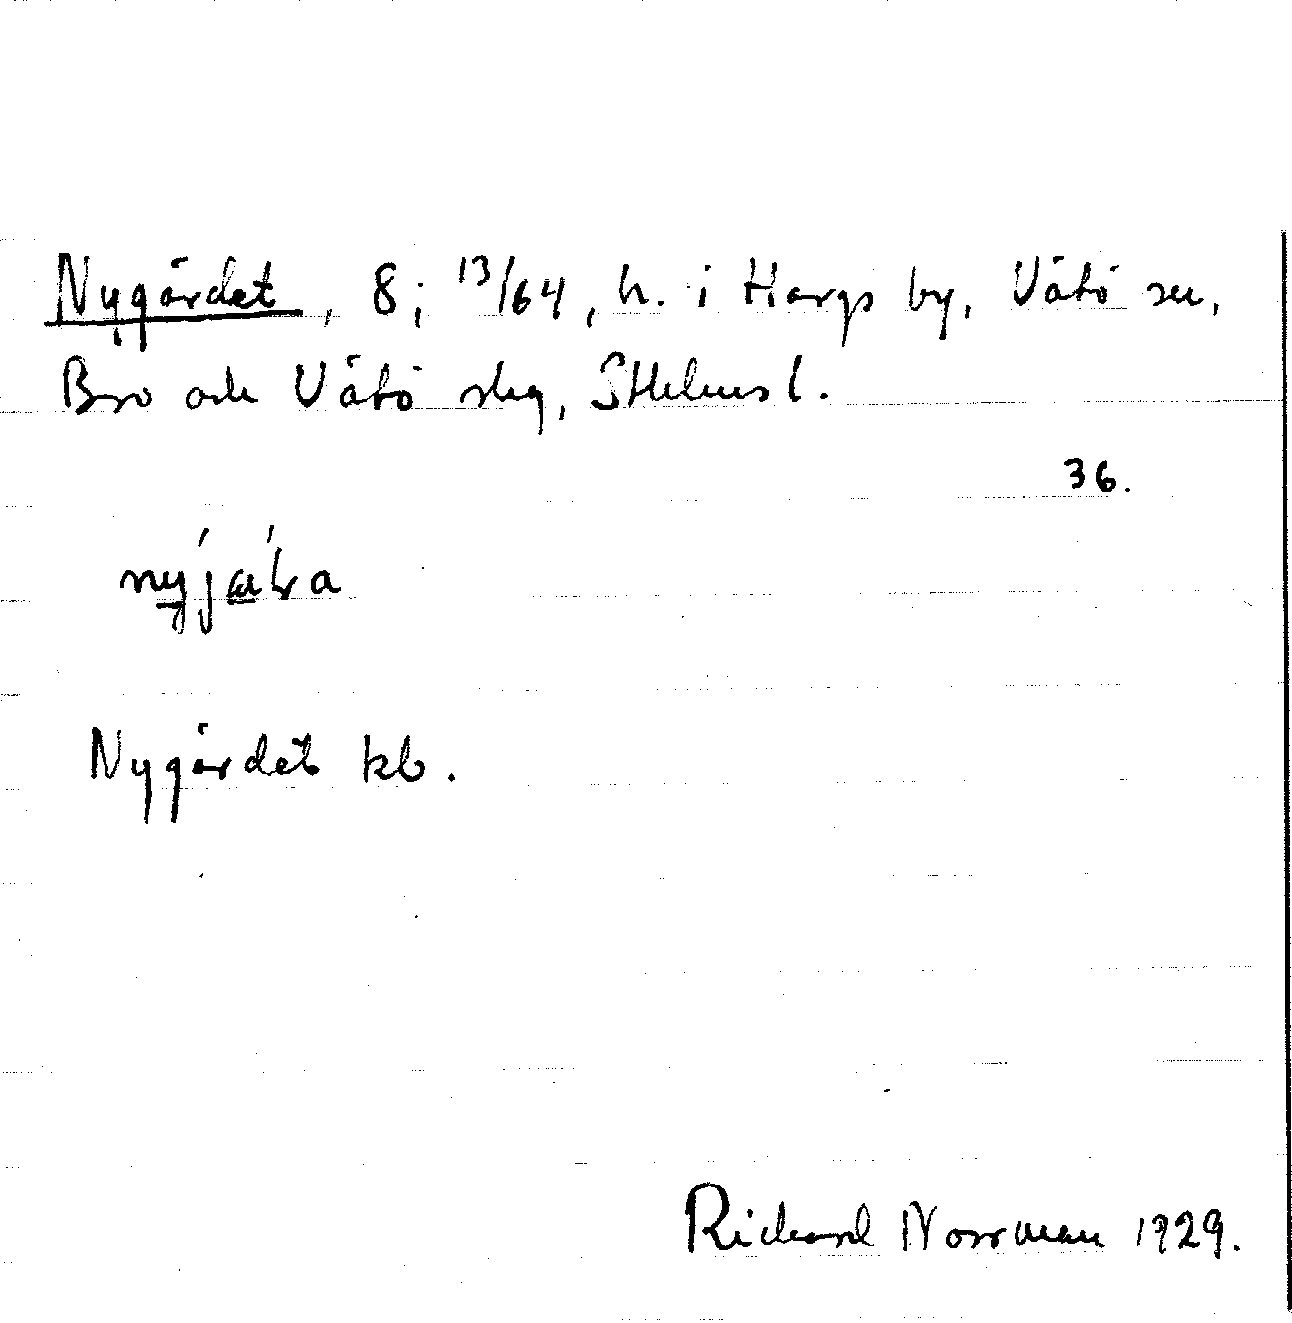 Nygärdet, 8; 13/64, h. i Hargs by, Vätö sn,
Bro och Vätö skg, Sthlms l.
36.
Nygärdet kb.
Rickard Norrman 1929.